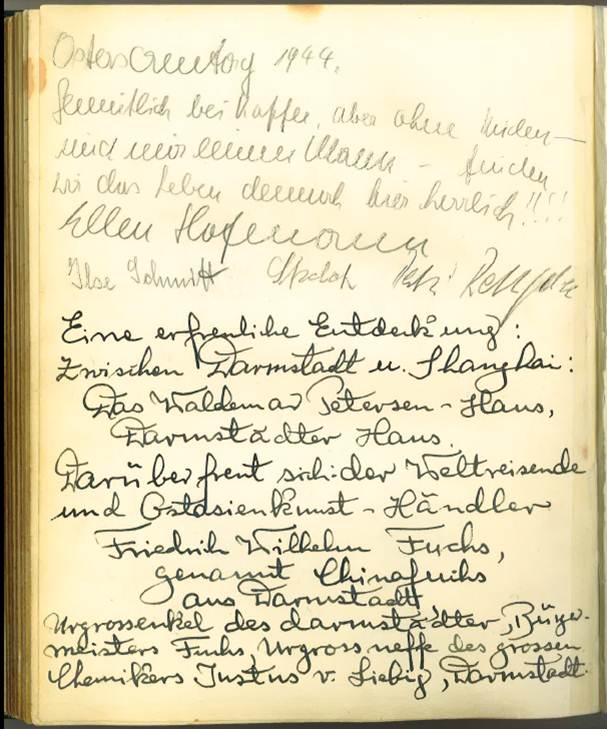 Ostersonntag 1944.
Gemütlich bei Kaffee, aber ohne Kuchen –
und nur einem Mann – finden
wir das Leben dennoch hier herrlich!!!!
Ellen Hofmann
Ilse Schmitt
Eine erfreuliche Entdeckung:
Zwischen Darmstadt u. Shanghai:
Das Waldemar Petersen-Haus,
Darmstädter Haus.
Darüber freut sich: der Weltreisende
und Ostasienkunst-Händler
Friedrich Wilhelm Fuchs,
genannt Chinafuchs
aus Darmstadt
Urgrossenkel des darmstädter Bürger-
meisters Fuchs, Urgrossneffe des grossen
Chemikers Justus v. Liebig, Darmstadt.